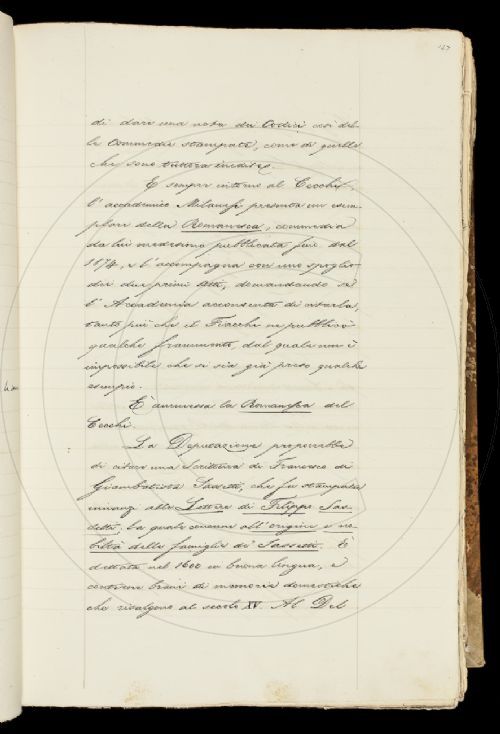 127
di dare una nota dei Codici così del-
le Commedie stampate, come di quelle
che sono tuttora inedite.
E sempre intorno al Cecchi,
l'accademico Milanesi presenta un esem-
plare della Romanesca, commedia
da lui medesimo pubblicata fin dal
1874, e l'accompagna con uno spoglio
dei due primi atti, domandando se
l'Accademia acconsenta di citarla,
tanto più che il Fiacchi ne pubblicò
qualche frammento, dal quale non è
impossibile che si sia già preso qualche
esempio.
È ammessa la Romanesca del
Cecchi.
La Deputazione proporrebbe
di citare una Scrittura di Francesco di
Giambatista Sassetti, che fu stampata
innanzi alle Lettere di Filippo Sas-
setti, la quale concerne all'origine e no-
biltà della famiglia de' Sassetti. È
dettata nel 1600 in buona lingua, e
contiene brani di memorie domestiche
che risalgono al secolo XV. Al Del